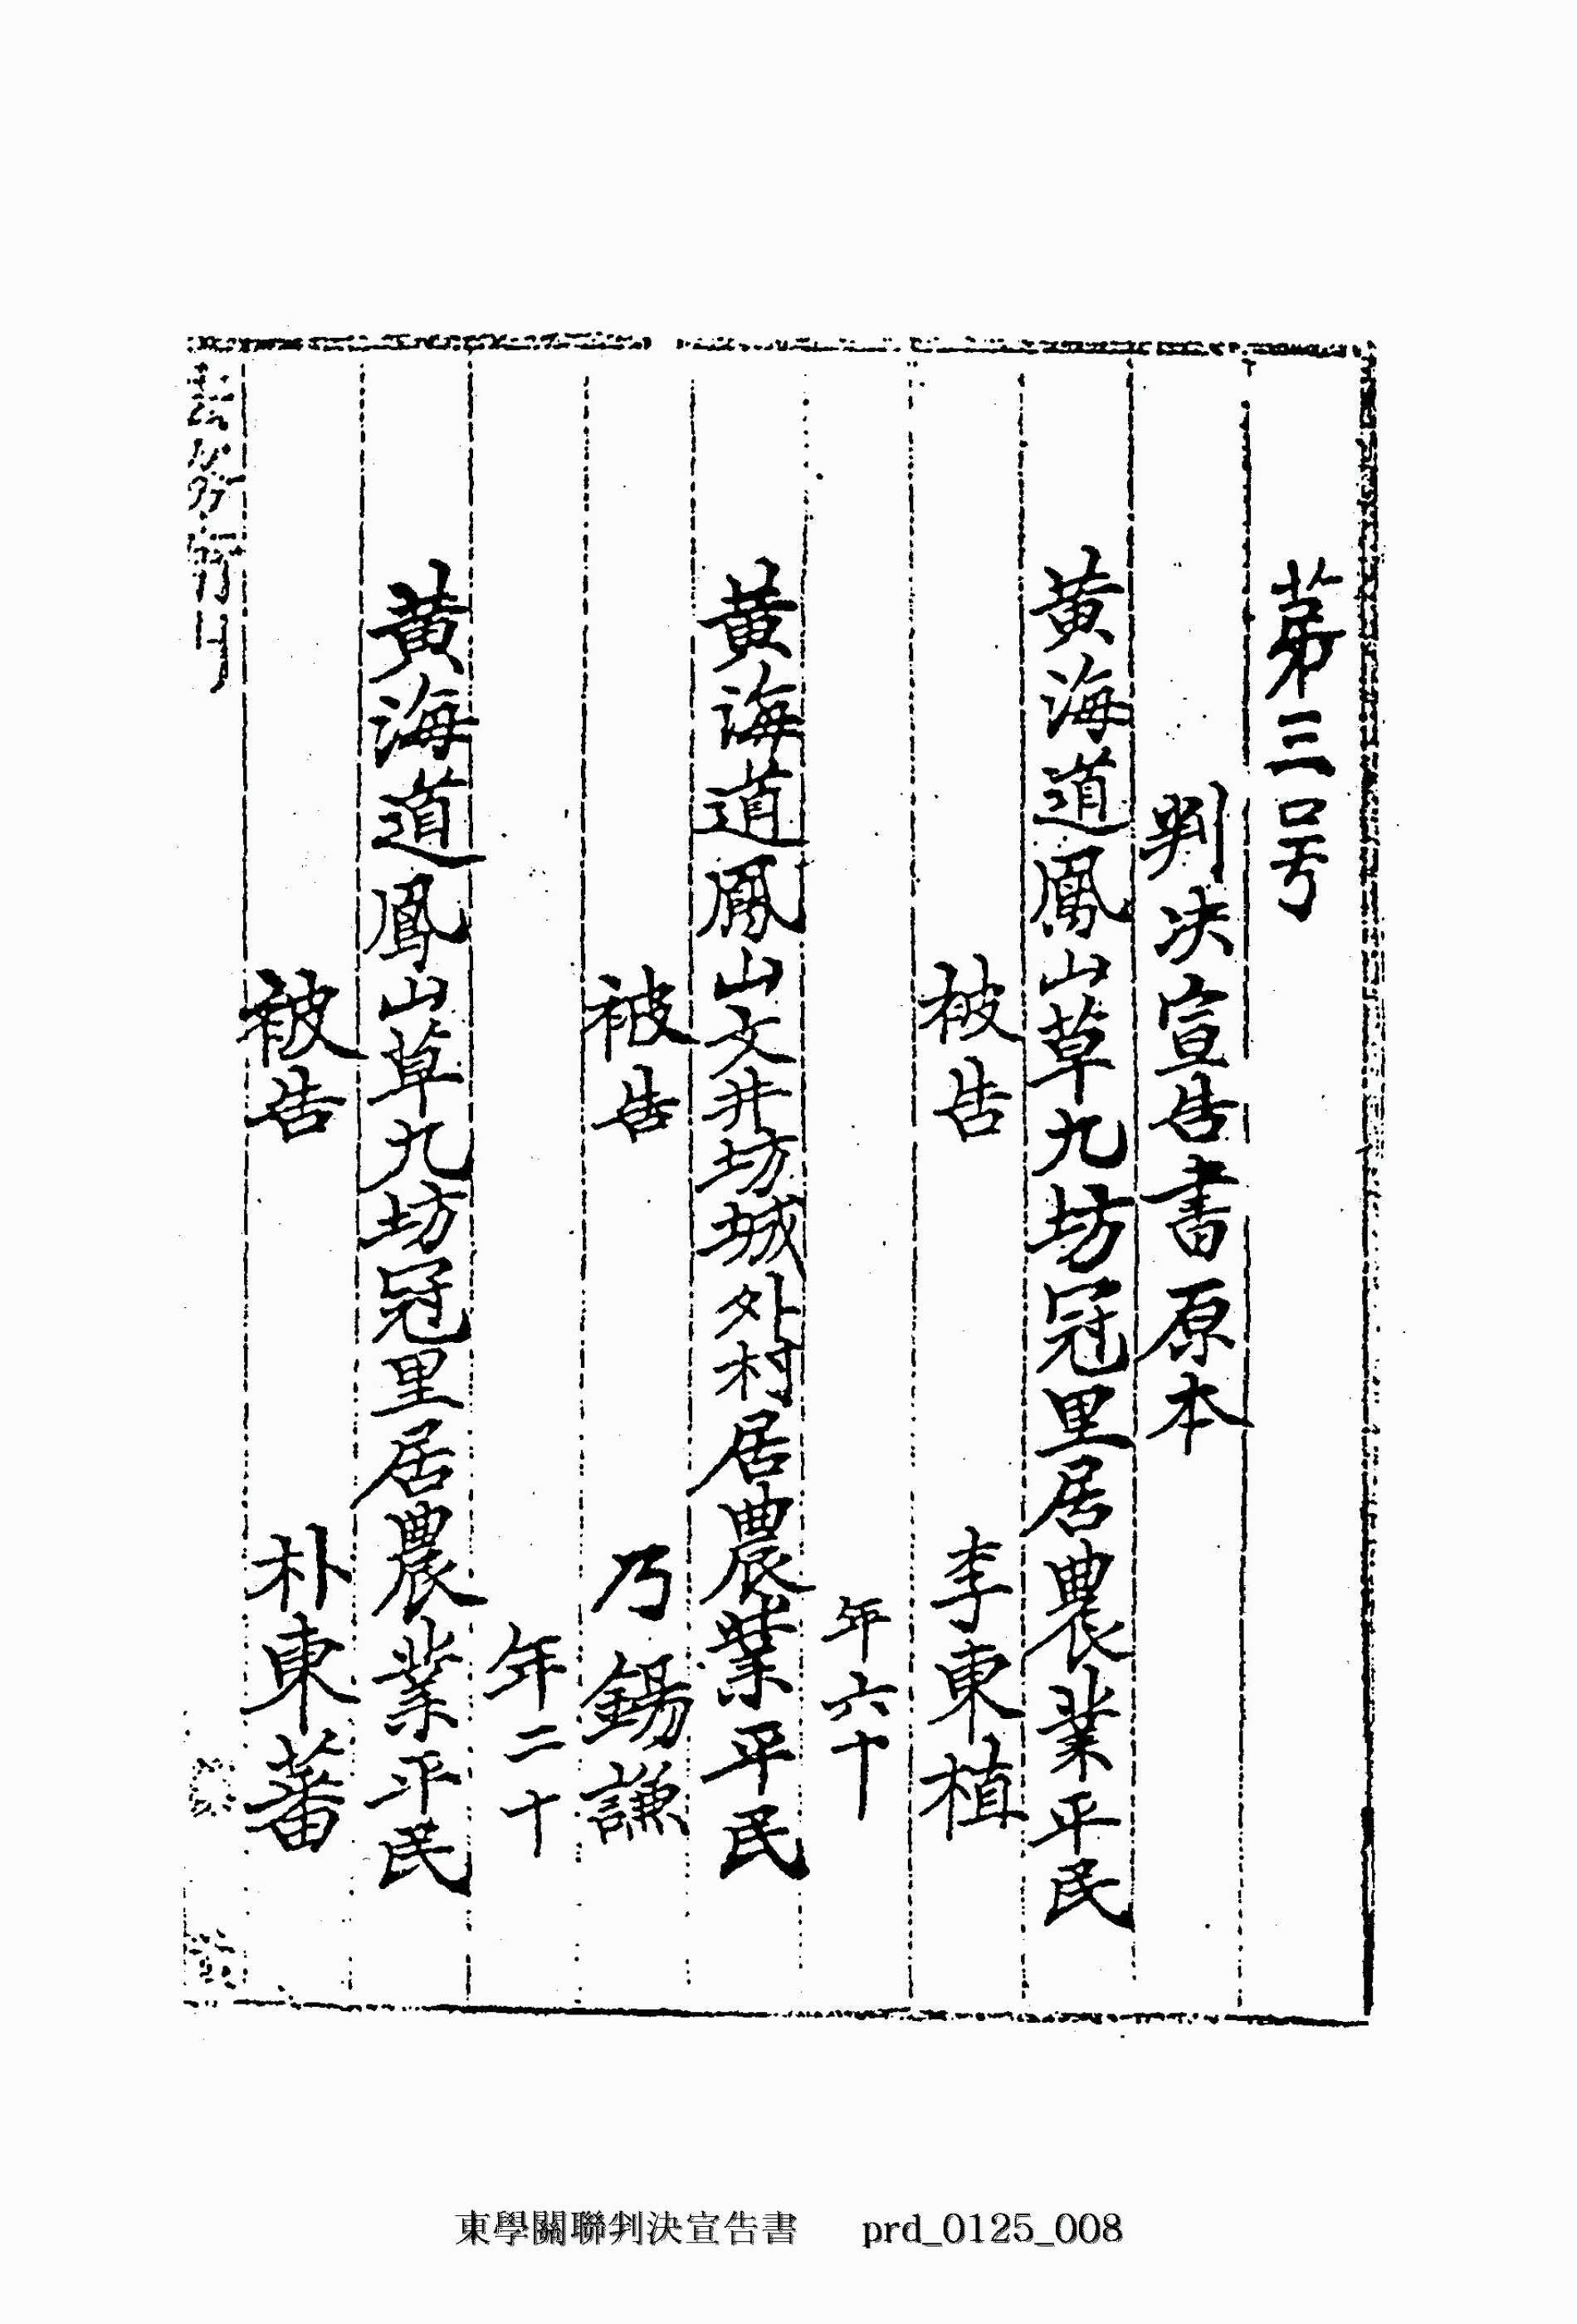 第三号
判决宣告書原本
黃海道鳳山草九坊冠里居農業平民
被告 李東植
年六十
黃海道鳳山文井坊城外村居農業平民
被告 乃錫謙
年二十
黃海道鳳山草九坊冠里居農業平民
被告 朴東蕃
東學關聯判決宣告書 prd_0125_008